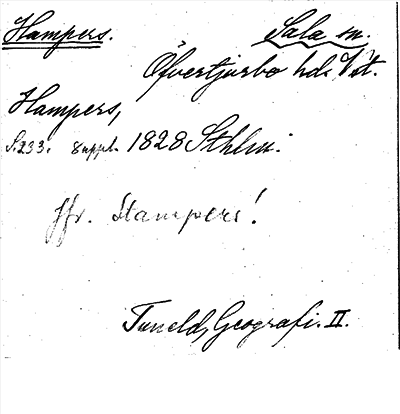 Hampers. Sala sn.
Öfvertjurbo hd. Vst.
Hampers,
S. 233. suppl. 1828 Sthlm.
Jfr. Stampers!
Tuneld, Geografi. II.